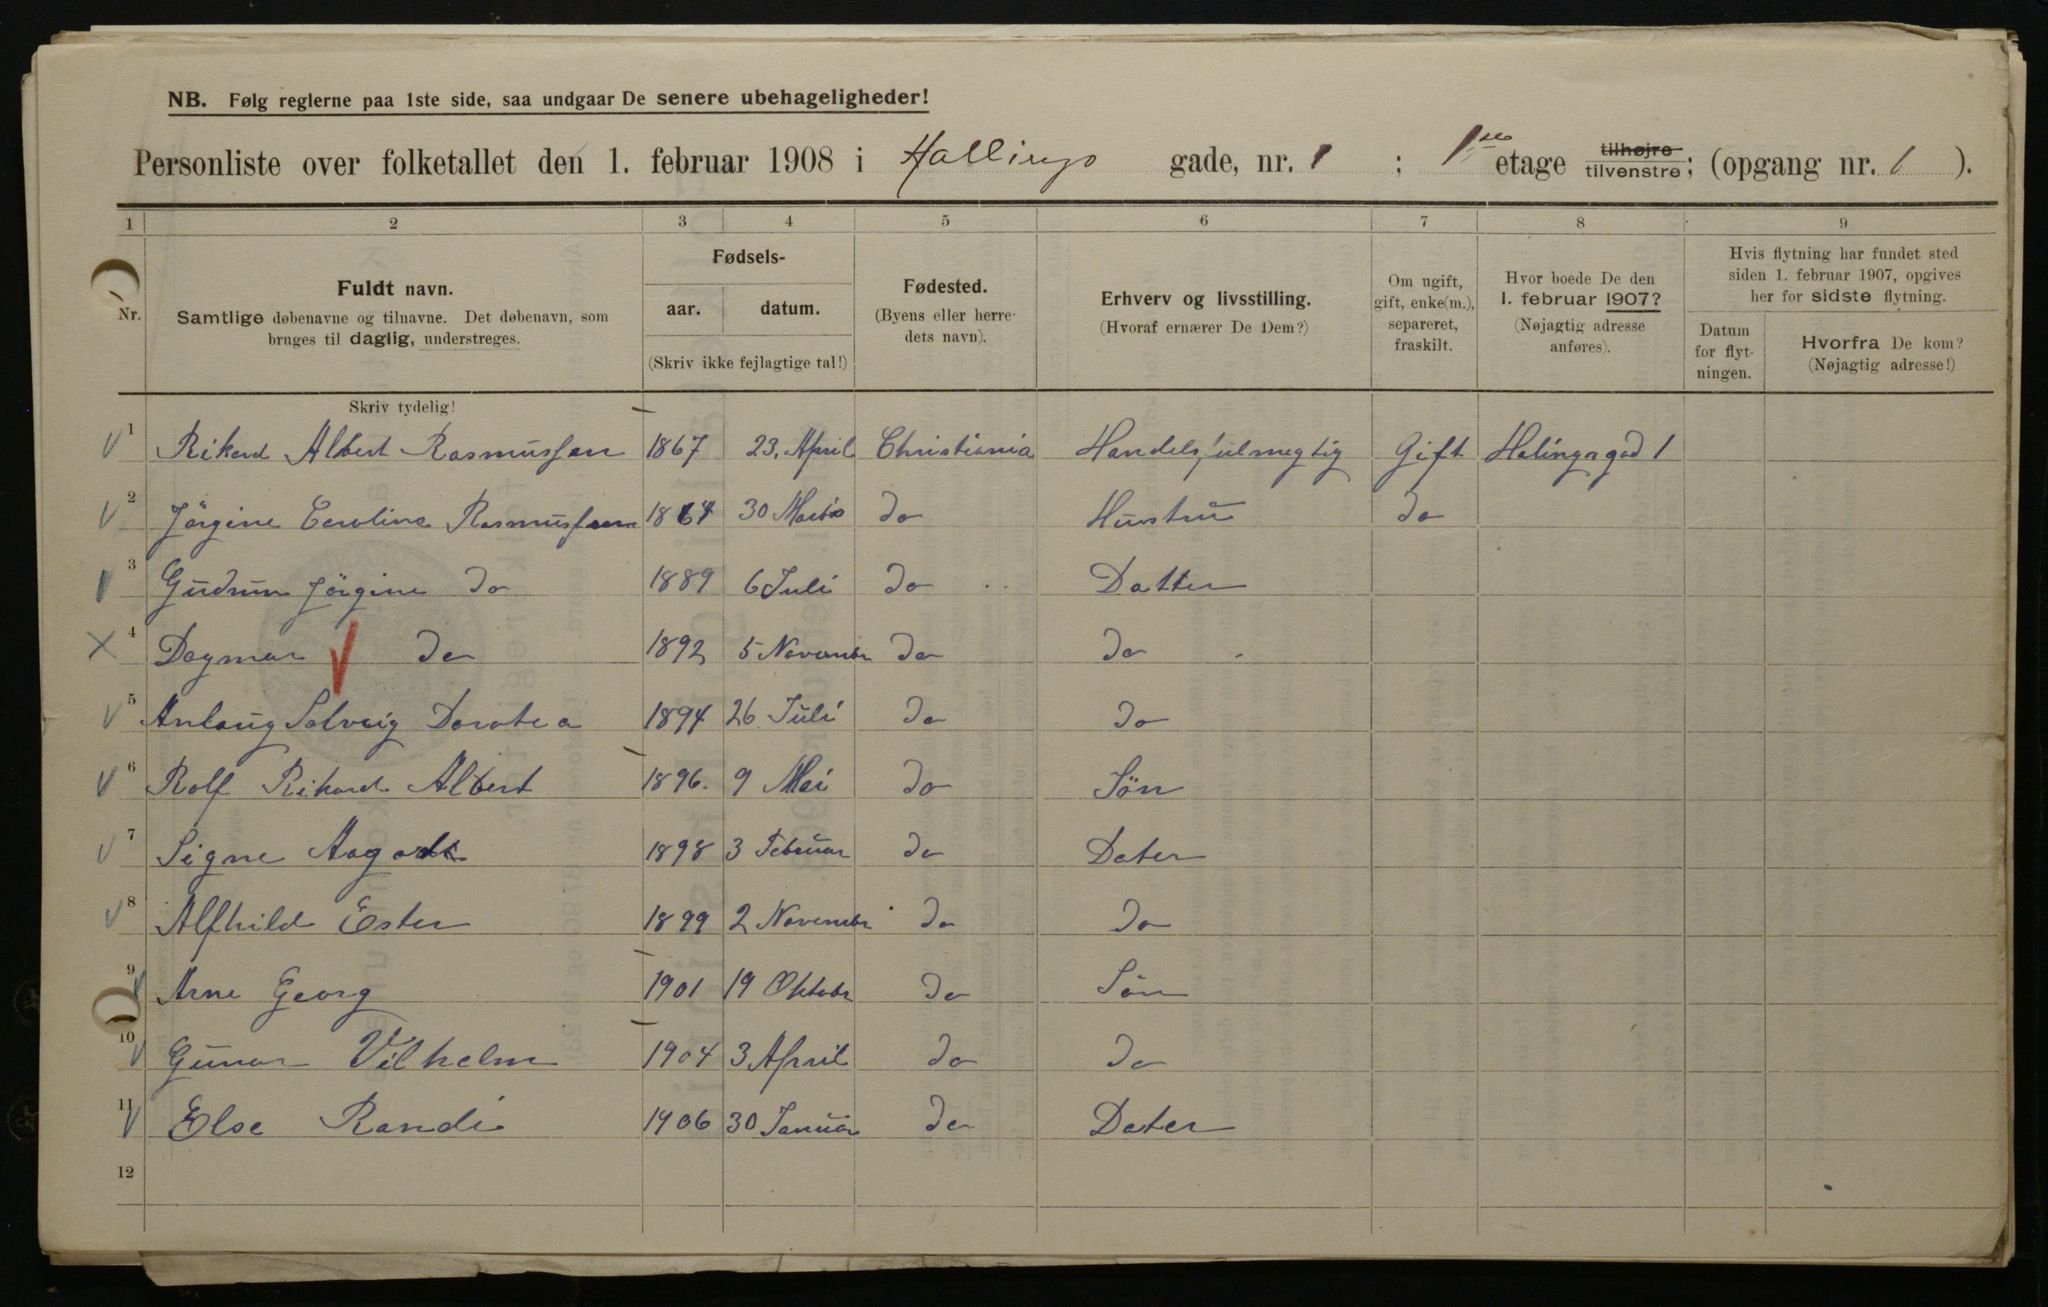 NB. Følg reglerne paa 1ste side, saa undgaar De senere ubehageligheder!
Personliste over folketallet den 1. februar 1908 i Hallings gade, nr. 1 ; 1ste etage tilhøjre tilvenstre; (opgang nr. 1 ).
1 2 3 4 5 6 7 8 9
Nr.
Fuldt navn.
Samtlige døbenavne og tilnavne. Det døbenavn, som
bruges til daglig, understreges.
Skriv tydelig!
Fødsels-
aar. datum.
(Skriv ikke fejlagtige tal!)
Fødested.
(Byens eller herre-
dets navn).
Erhverv og livsstilling.
(Hvoraf ernærer De Dem?)
Om ugift,
gift, enke(m.),
separeret,
fraskilt.
Hvor boede De den
1. februar 1907?
(Nøjagtig adresse
anføres).
Hvis flytning har fundet sted
siden 1. februar 1907, opgives
her for sidste flytning.
Datum
for flyt-
ningen.
Hvorfra De kom?
(Nøjagtig adresse!)
1 Rikard Albert Rasmussen 1867 23. April Christiania Handelsfulmegtig Gift Halingsgad 1
2 Jörgine Caroline Rasmussen 1864 30 do Hustru do
3 Gudrun Jörgine do 1889 6 Juli do Datter
4 Dagmar do 1892 5 November do do
5 Anlaug Solveig Dorotea 1894 26 Juli do do
6 Rolf Rikard Albert 1896. 9 Mai do Sön
7 Signe 1898 3 Februar do Dater
8 Alfhild Ester 1899 2 November do do
9 Arne Georg 1901 19 Oktober do Sön
10 Gunar Vilhelm 1904 3 April do do
11 Else Randi 1906 30 Januar do Dater
12